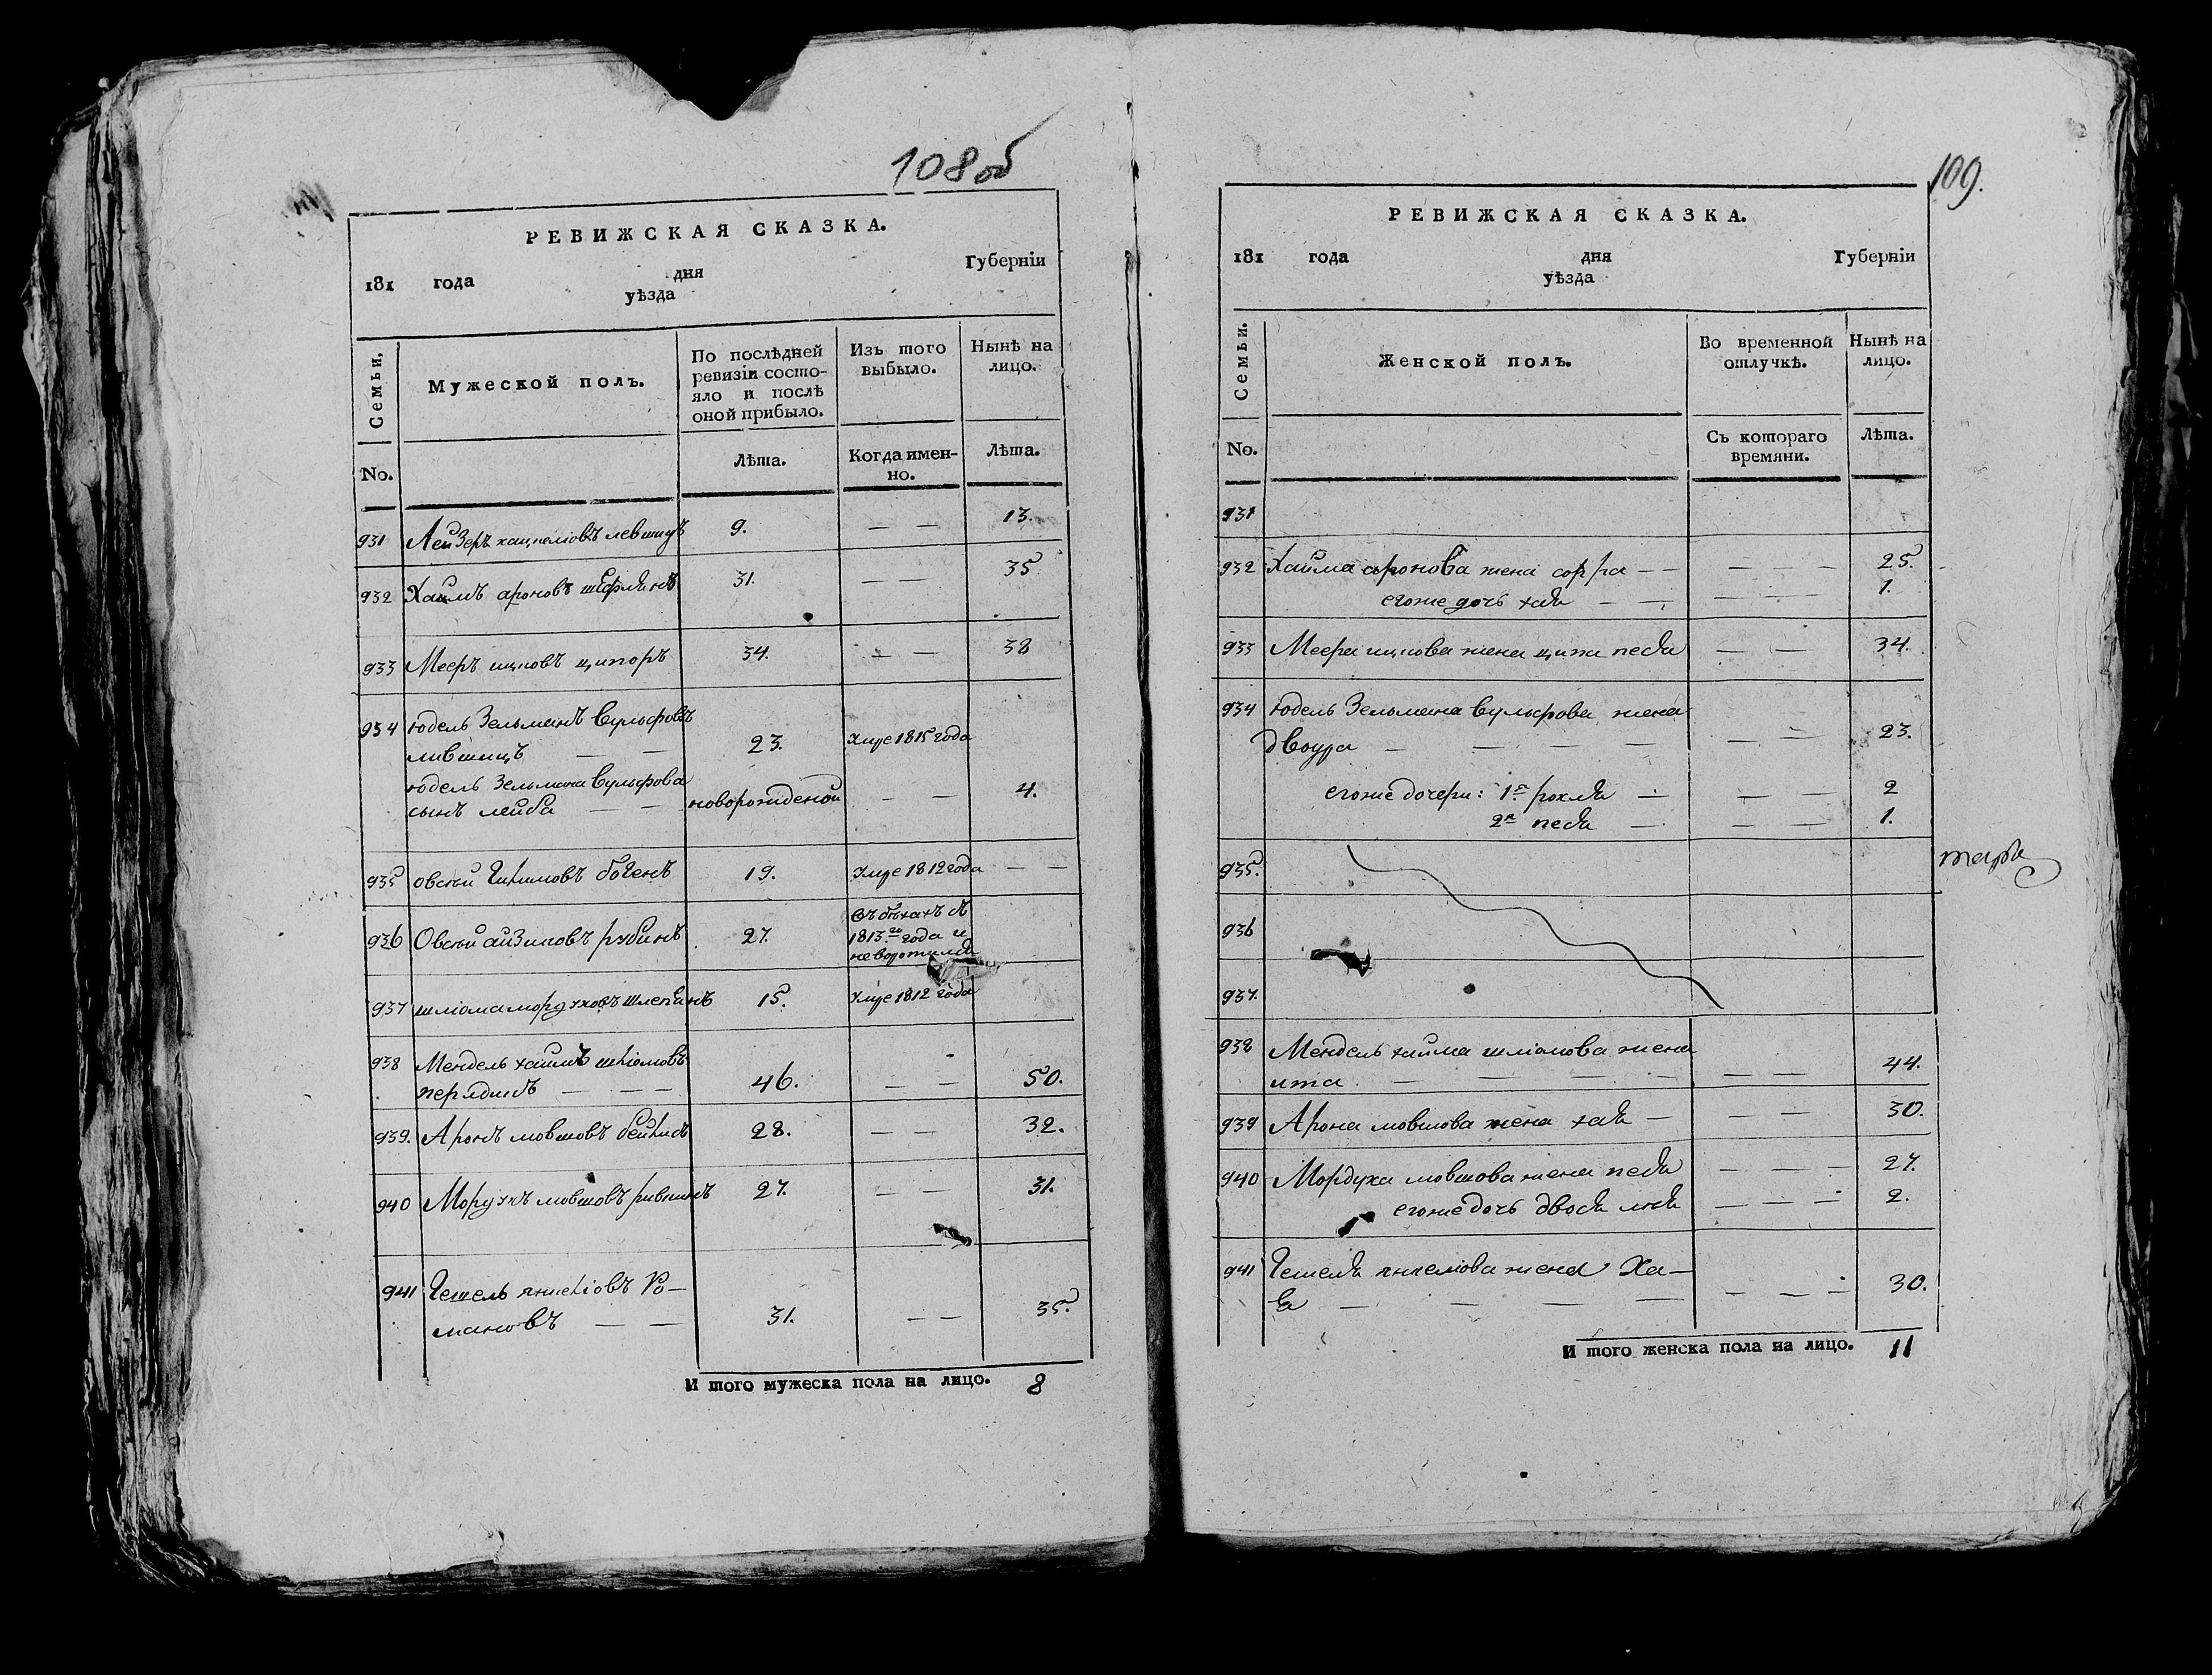 108 об
РЕВИЖСКАЯ СКАЗКА.
181 года дня Губерніи
уѣзда
Семьи. Мужеской полъ. По послѣдней ревизіи состояло и послѣ оной прибыло. Изъ того выбыло. Нынѣ на лицо.
No. Лѣта. Когда именно. Лѣта.
931 Лейзеръ 9. — — 13.
932 Хаимъ ароновъ 31. — — 35
933 Мееръ ицковъ ципоръ 34. — — 38
934 юдель Зельманъ вульфовъ
лившицъ — — 23. умре 1815 года
юдель Зельмана вульфова
сынъ лейба — — новорожденой — — 4.
935 овсей боченъ 19. умре 1812 года — —
936 Овсей айзиковъ рубинъ 27. въ бѣгахъ съ
1813.го года и
не воротился
937 шліома мордуховъ 15. умре 1812 года
938 Мендель хаимъ шліомовъ
— — — 46. — — 50.
939. Аронъ мовшовъ 28. — — 32.
940 Мордухъ мовшовъ ривкинъ 27. — — 31.
941 Гешель Ро—
мановъ — — 31. — — 35.
И того мужеска пола на лицо. 8
109.
РЕВИЖСКАЯ СКАЗКА.
181 года дня Губерніи
уѣзда
Семьи. Женской полъ. Во временной отлучкѣ. Нынѣ на лицо.
No. Съ котораго времяни. Лѣта.
931
932 Хаима аронова жена сорра — — — — — 25.
егоже дочь хая — — — — — 1.
933 Меера ицкова жена ципа песя — — 34.
934 юдель Зельмана вульфова жена
двоура — — — — — — 23.
егоже дочери: 1я рохля — — — 2
2я песя — — — 1.
935.
936
937.
938 Мендель хаима шліомова жена
ита — — — — — — 44.
939 Арона мовшова жена хая — — — 30.
940 Мордуха мовшова жена песя — — — 27.
егоже дочь двося — — — 2.
941 Гешеля жена Ха—
ва — — — — — — — 30.
И того женска пола на лицо. 11